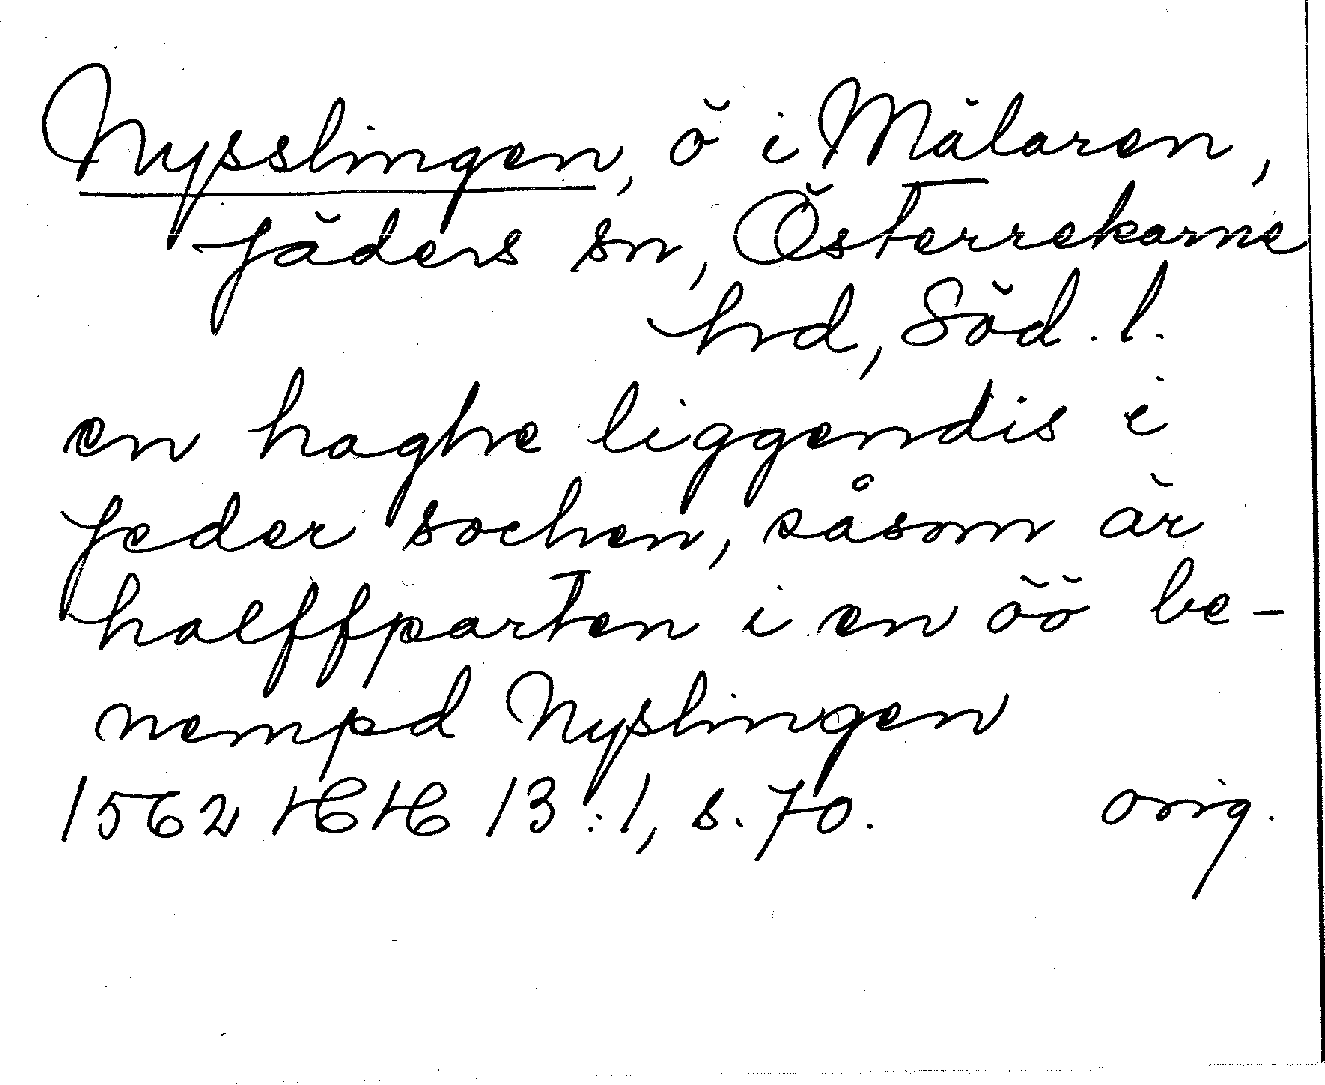 Nysslingen, ö i Mälaren,
Jäders sn, Österrekarne
hd, Söd. l.
en haghe liggendis i
Jeder sochen, såsom är
halffparten i en öö be-
nempd Nyslingen
1562 HH 13:1, s. 70. orig.